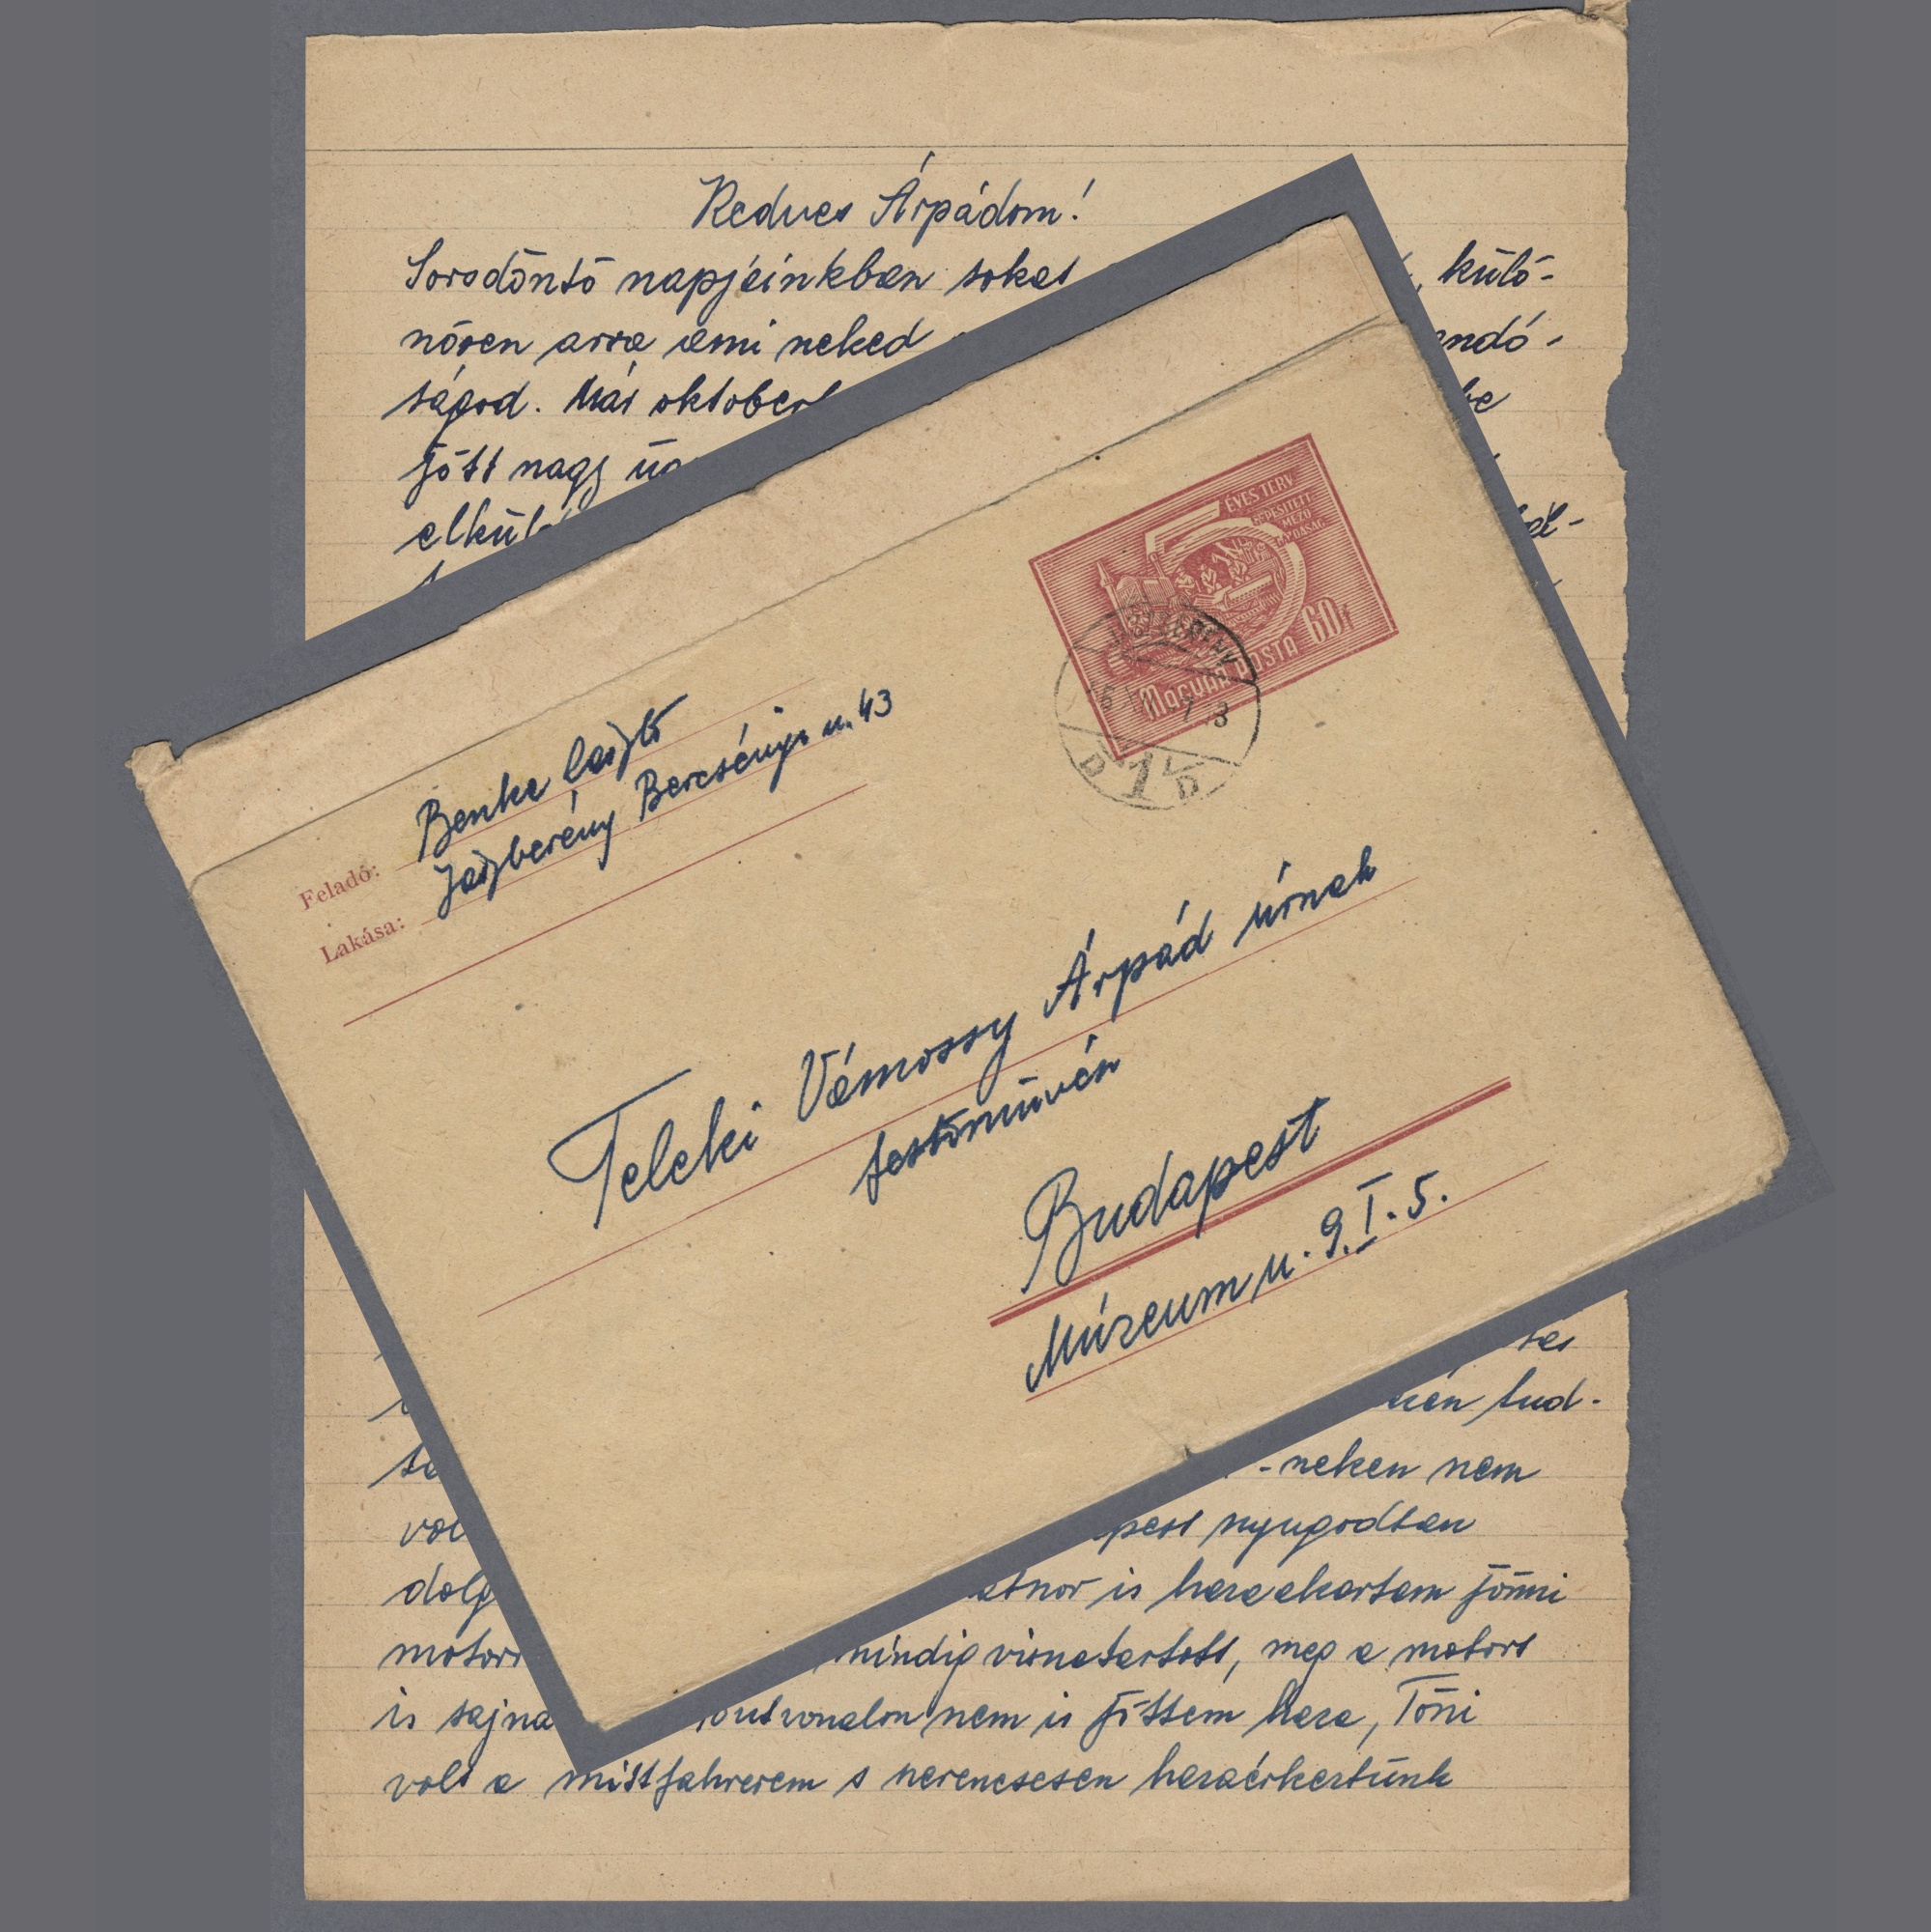 Kedves Árpádom!
Sorsdöntő napjainkban sokat
, külö-
nösen arra ami neked
endő-
ságod. Már
jött nagy
5 ÉVES TERV
GÉPESÍTETT
MEZŐ
GAZDASÁG
60f
MAGYAR POSTA
JÁSZBERÉNY
D 1 D
Feladó: Benke László
Lakása: Jászberény Bercsényi u. 43
Teleki Vámossy Árpád úrnak
festőművész
Budapest
Múzeum u. 9. I. 5.
tud-
-neken nem
nyugodtan
is haza akartam jönni
mindig visszatartott, meg a motort
is sajná
nem is jöttem haza, Töni
volt a mistfahrerem s szerencsésen hazaérkeztünk